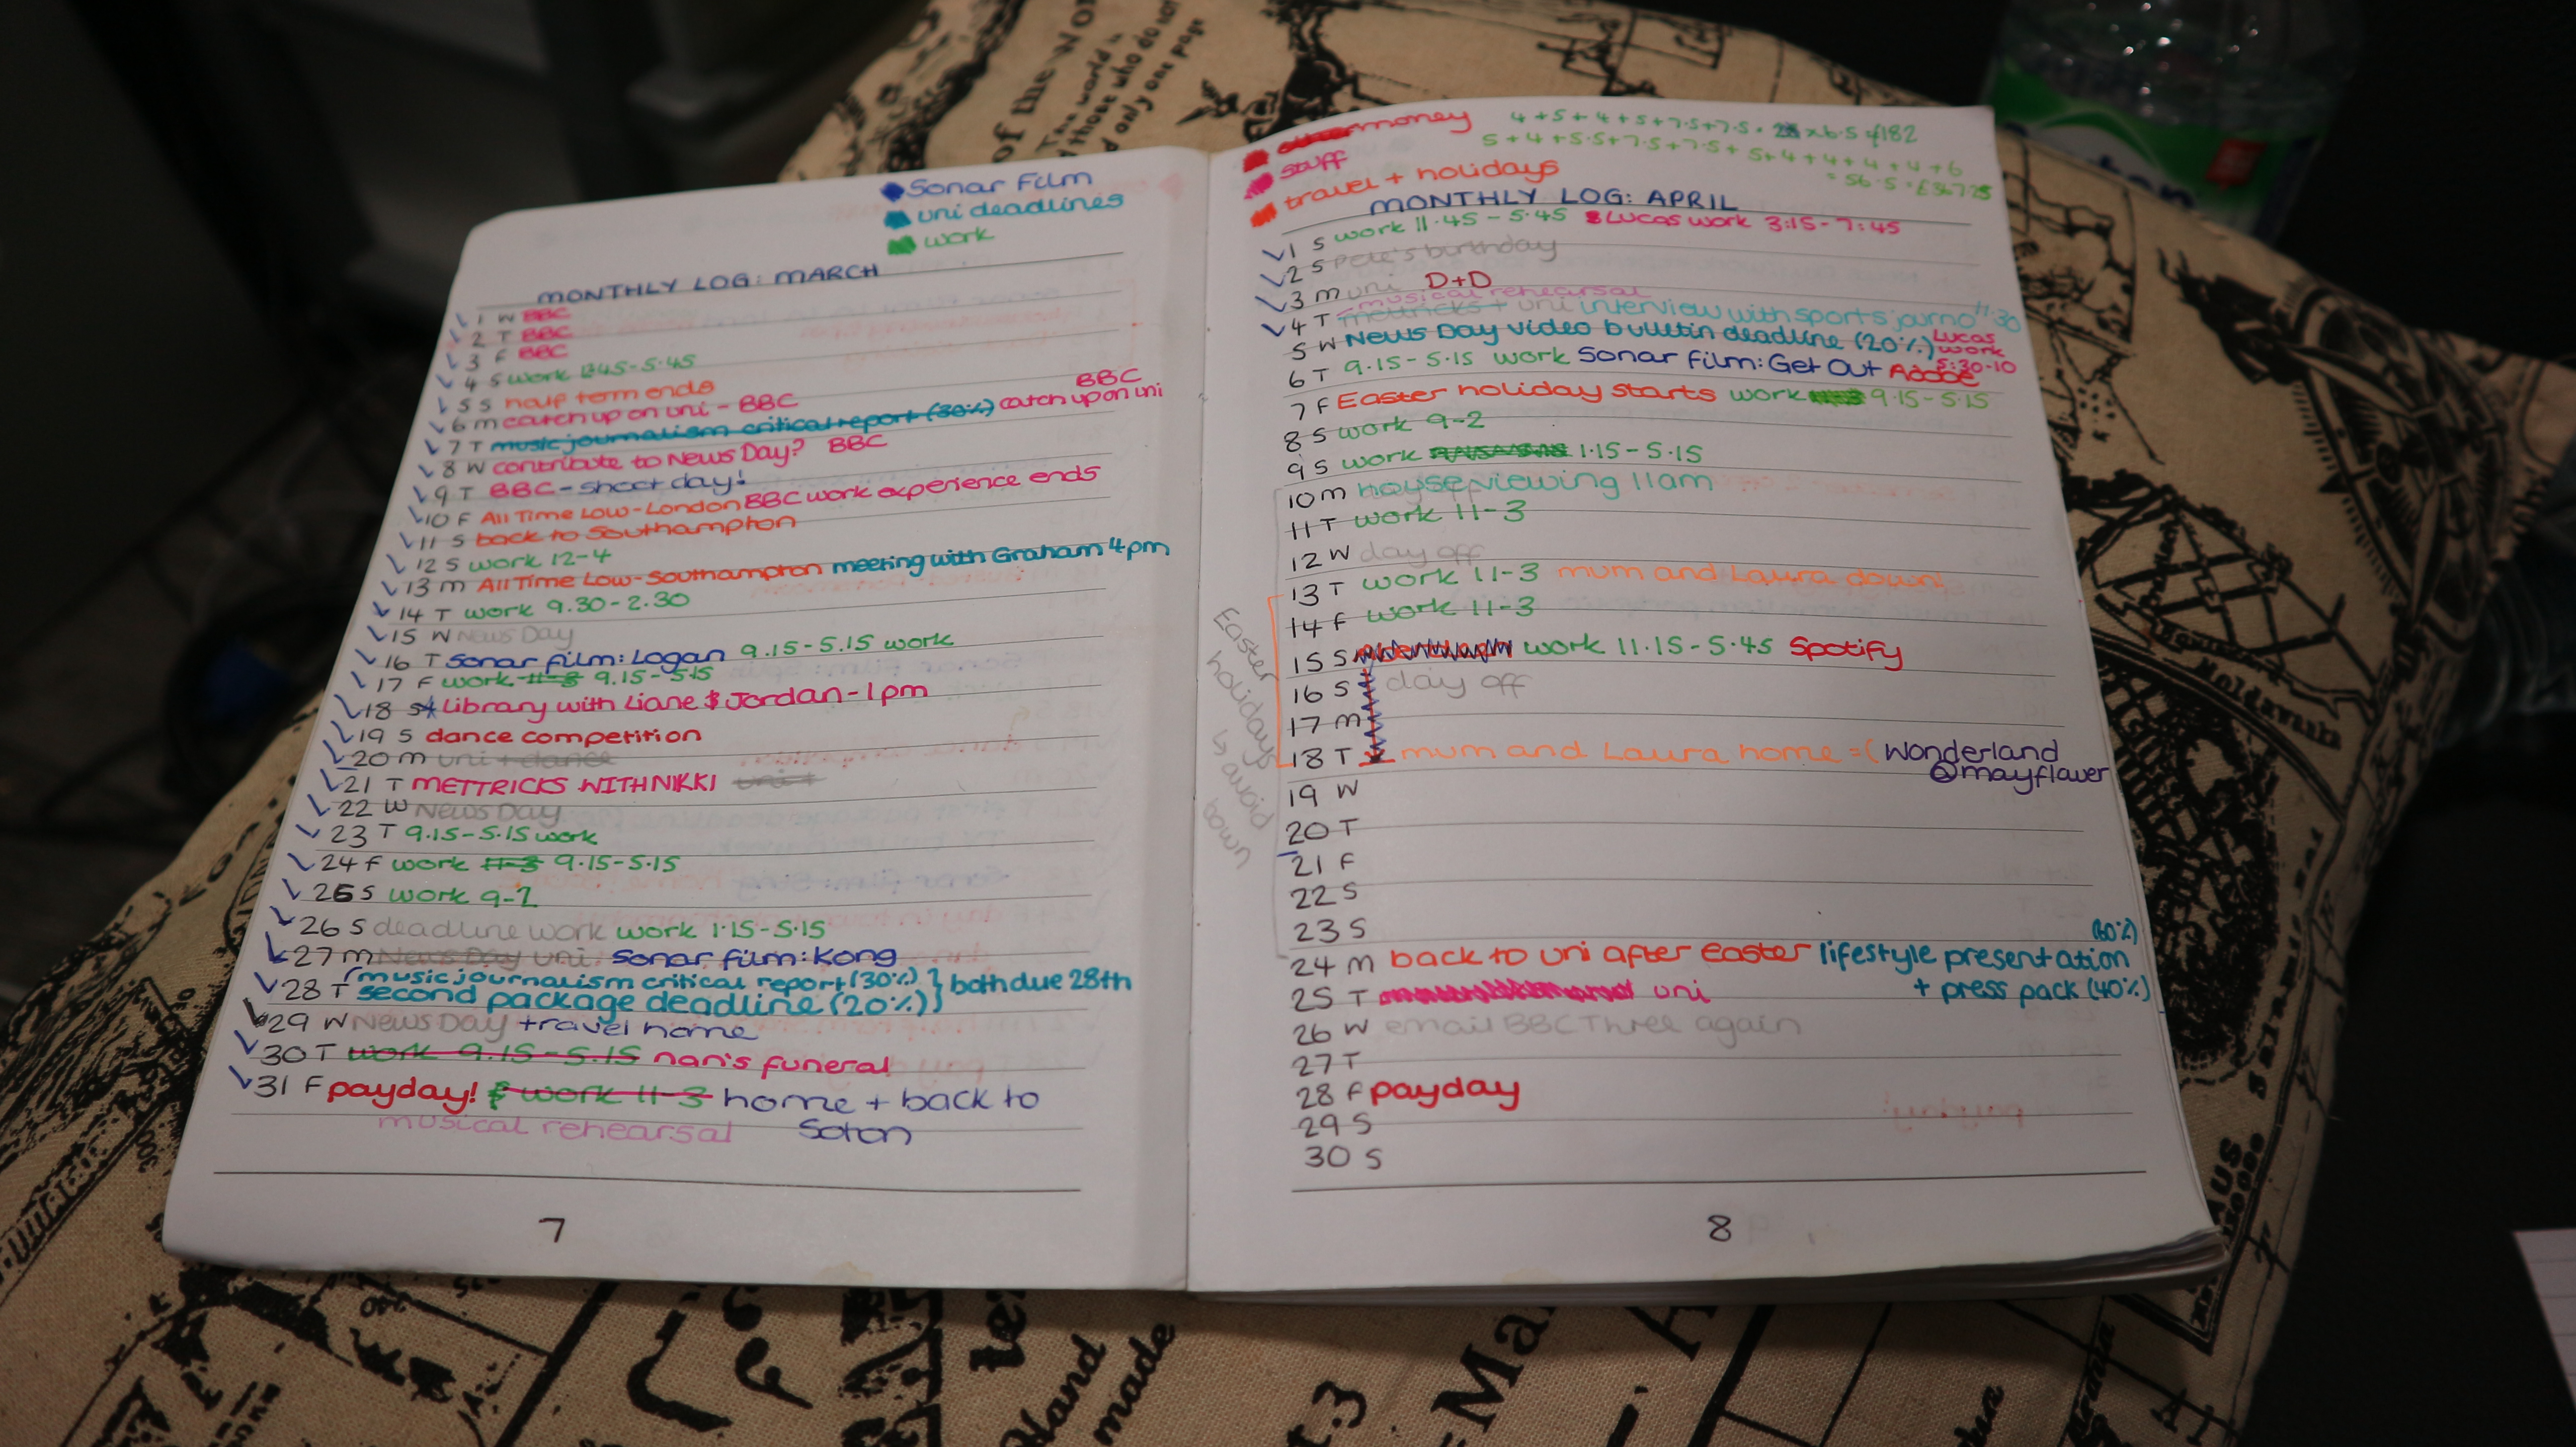 Sonar Film
uni deadlines
work
MONTHLY LOG: MARCH
1 W BBC
2 T BBC
3 F BBC
4 S work 1345-5.45
5 S half term ends
6 m catch up on uni - BBC
7 T music journalism critical report (30%) BBC catch up on uni
8 W contribute to News Day? BBC
9 T BBC - shoot day!
10 F All Time Low - London BBC work experience ends
11 S back to Southampton
12 S work 12-4
13 m All Time Low - Southampton meeting with Graham 4pm
14 T work 9.30-2.30
15 W News Day
16 T Sonar film: Logan 9.15-5.15 work
17 F work 11-3 9.15-5.15
18 S Library with Liane & Jordan - 1pm
19 S dance competition
20 m uni + dance
21 T METTRICKS WITH NIKKI uni +
22 W News Day
23 T 9.15-5.15 work
24 F work 11-3 9.15-5.15
25 S work 9-2
26 S deadline work work 1.15-5.15
27 m News Day uni, Sonar film: Kong
28 T (music journalism critical report (30%) } both due 28th
second package deadline (20%)
29 W News Day travel home
30 T work 9.15-5.15 nan's funeral
31 F payday! work 11-3 home + back to
musical rehearsal Soton
7
money
stuff
travel + holidays
4+5+4+5+7.5+7.5 = 28 x 6.5 £182
5+4+5.5+7.5+7.5+5+4+4+4+4+6
MONTHLY LOG: APRIL
1 S work 11.45-5.45 Lucas work 3:15-7:45
2 S Pete's birthday
3 m uni D+D
musical rehearsal
4 T mettricks + uni interview with sports journo 11.30
5 W News Day video bulletin deadline (20%) Lucas work 5:30-10
6 T 9.15-5.15 work Sonar film: Get Out Adobe
7 F Easter holiday starts work 9.15-5.15
8 S work 9-2
9 S work 1.15-5.15
10 m house viewing 11am
11 T work 11-3
12 W day off
13 T work 11-3 mum and Laura down!
14 F work 11-3
15 S work 11.15-5.45 Spotify
16 S day off
17 m
18 T mum and Laura home =( Wonderland
@mayflower
19 W
20 T
21 F
22 S
23 S
24 m back to uni after easter lifestyle presentation (60%)
25 T uni + press pack (40%)
26 W email BBC Three again
27 T
28 F payday
29 S
30 S
Easter
holidays
↳ avoid
town
8
of the Wo
This world is
those who do not
only one page
Moldawanka
Hand
made